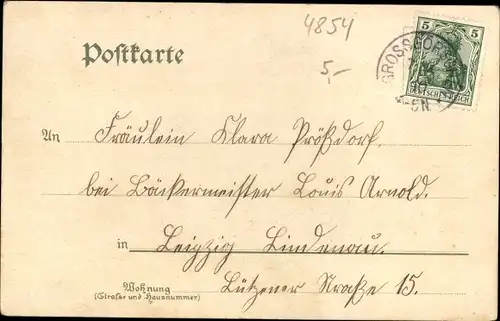 4854
Postkarte
5,-
5 5
DEUTSCHES REICH
An Fräulein Klara Prößdorf.
bei Bäckermeister Louis Arnold.
in Leipzig Lindenau.
Wohnung
(Straße und Hausnummer)
Lützener Straße 15.